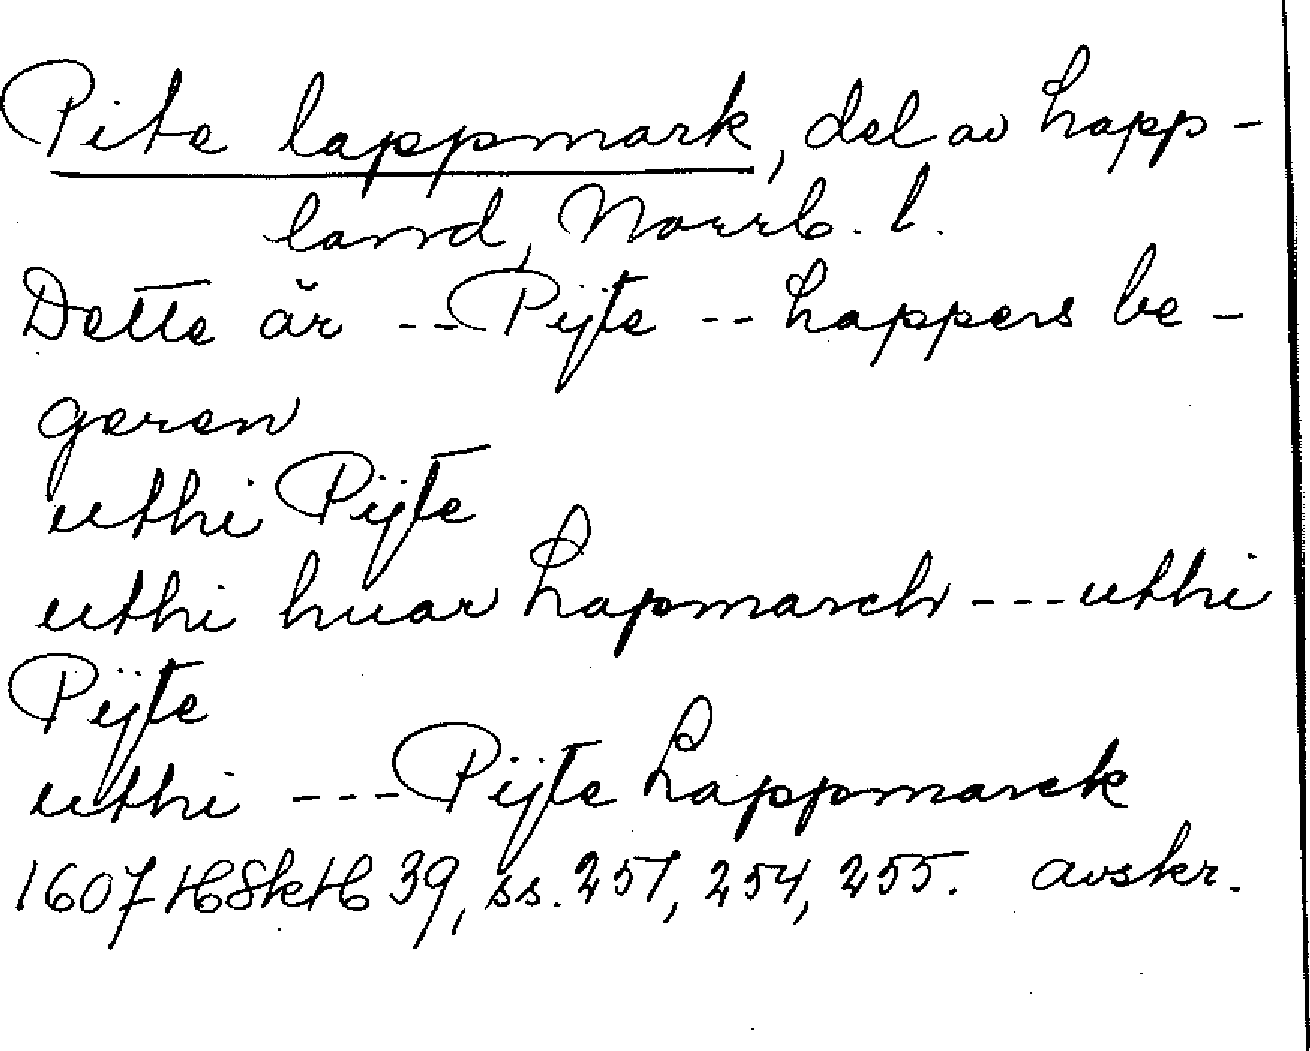 Pite lappmark, del av Lapp-
land, Norrb. l.
Dette är -- Pijte -- Lappers be-
geren
uthi Pijte
uthi huar Lapmarch --- uthi
Pijte
uthi --- Pijte Lappmarck
1607 HSkH 39, ss. 251, 254, 255. avskr.